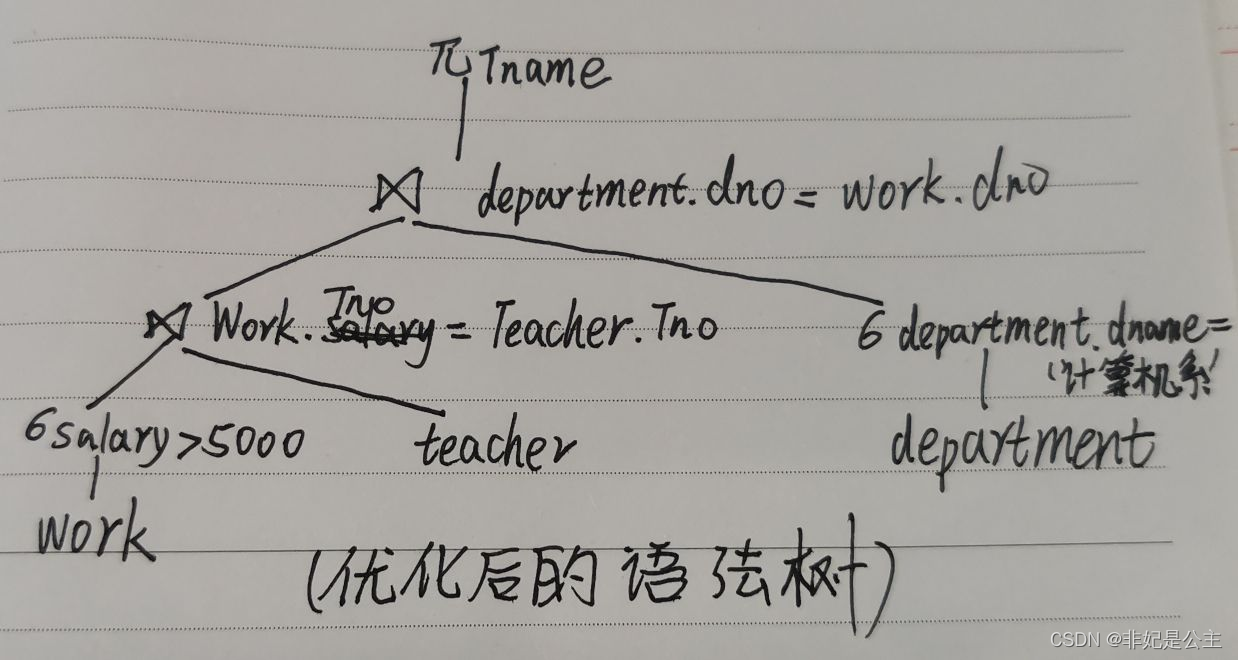 π Tname
⋈ department.dno = work.dno
Tno
⋈ Work.salary = Teacher.Tno
6 department.dname=
'计算机系'
6 salary>5000
teacher
department
work
(优化后的语法树)
CSDN @非妃是公主